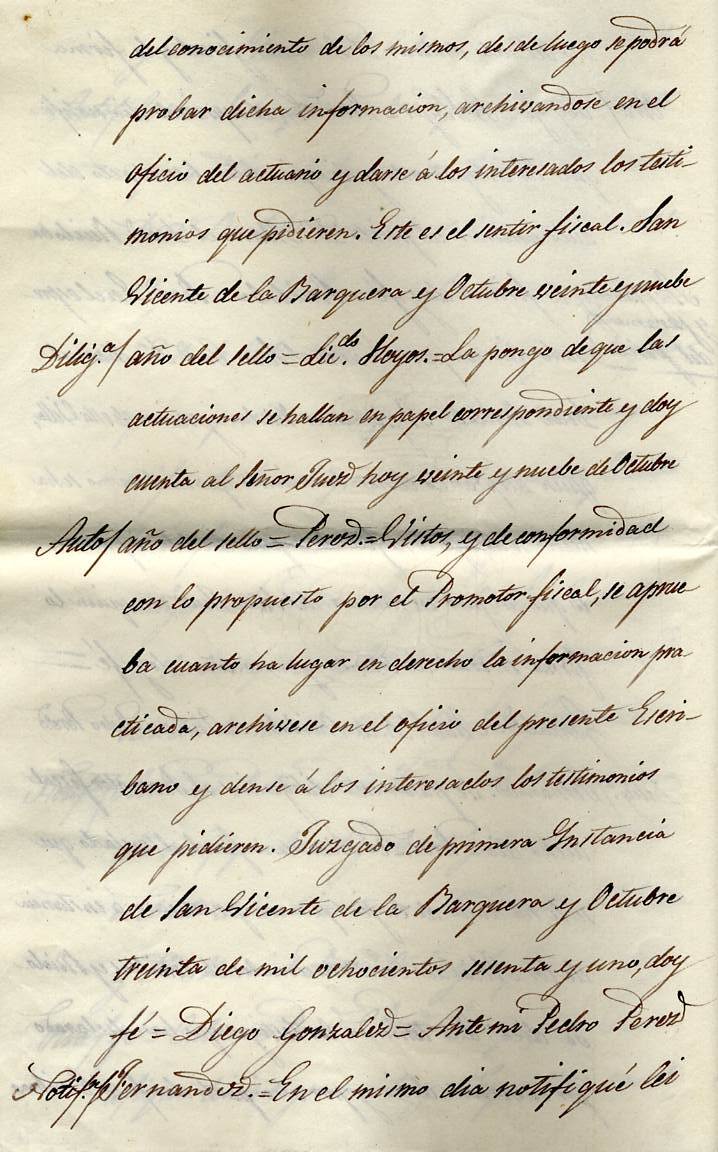 del conocimiento de los mismos, desde luego se podrá
probar dicha informacion, archivandose en el
oficio del actuario y darse á los interesados los testi-
monios que pidieren. Este es el sentir fiscal. San
Vicente de la Barquera y Octubre veinte y nuebe
Dilig.ª/ año del sello = Lic.do Hoyos. = La pongo de que las
actuaciones se hallan en papel correspondiente y doy
cuenta al Señor Juez hoy veinte y nuebe de Octubre
Auto/ año del sello = Perez. = Vistos, y de conformidad
con lo propuesto por el Promotor fiscal, se aprue
ba cuanto ha lugar en derecho la informacion pra
cticada, archivese en el oficio del presente Escri-
bano y dense á los interesados los testimonios
que pidieren. Juzgado de primera Instancia
de San Vicente de la Barquera y Octubre
treinta de mil ochocientos sesenta y uno, doy
fé = Diego Gonzalez = Ante mi Pedro Perez
Notif.n/ Fernandez. = En el mismo dia notifiqué lei